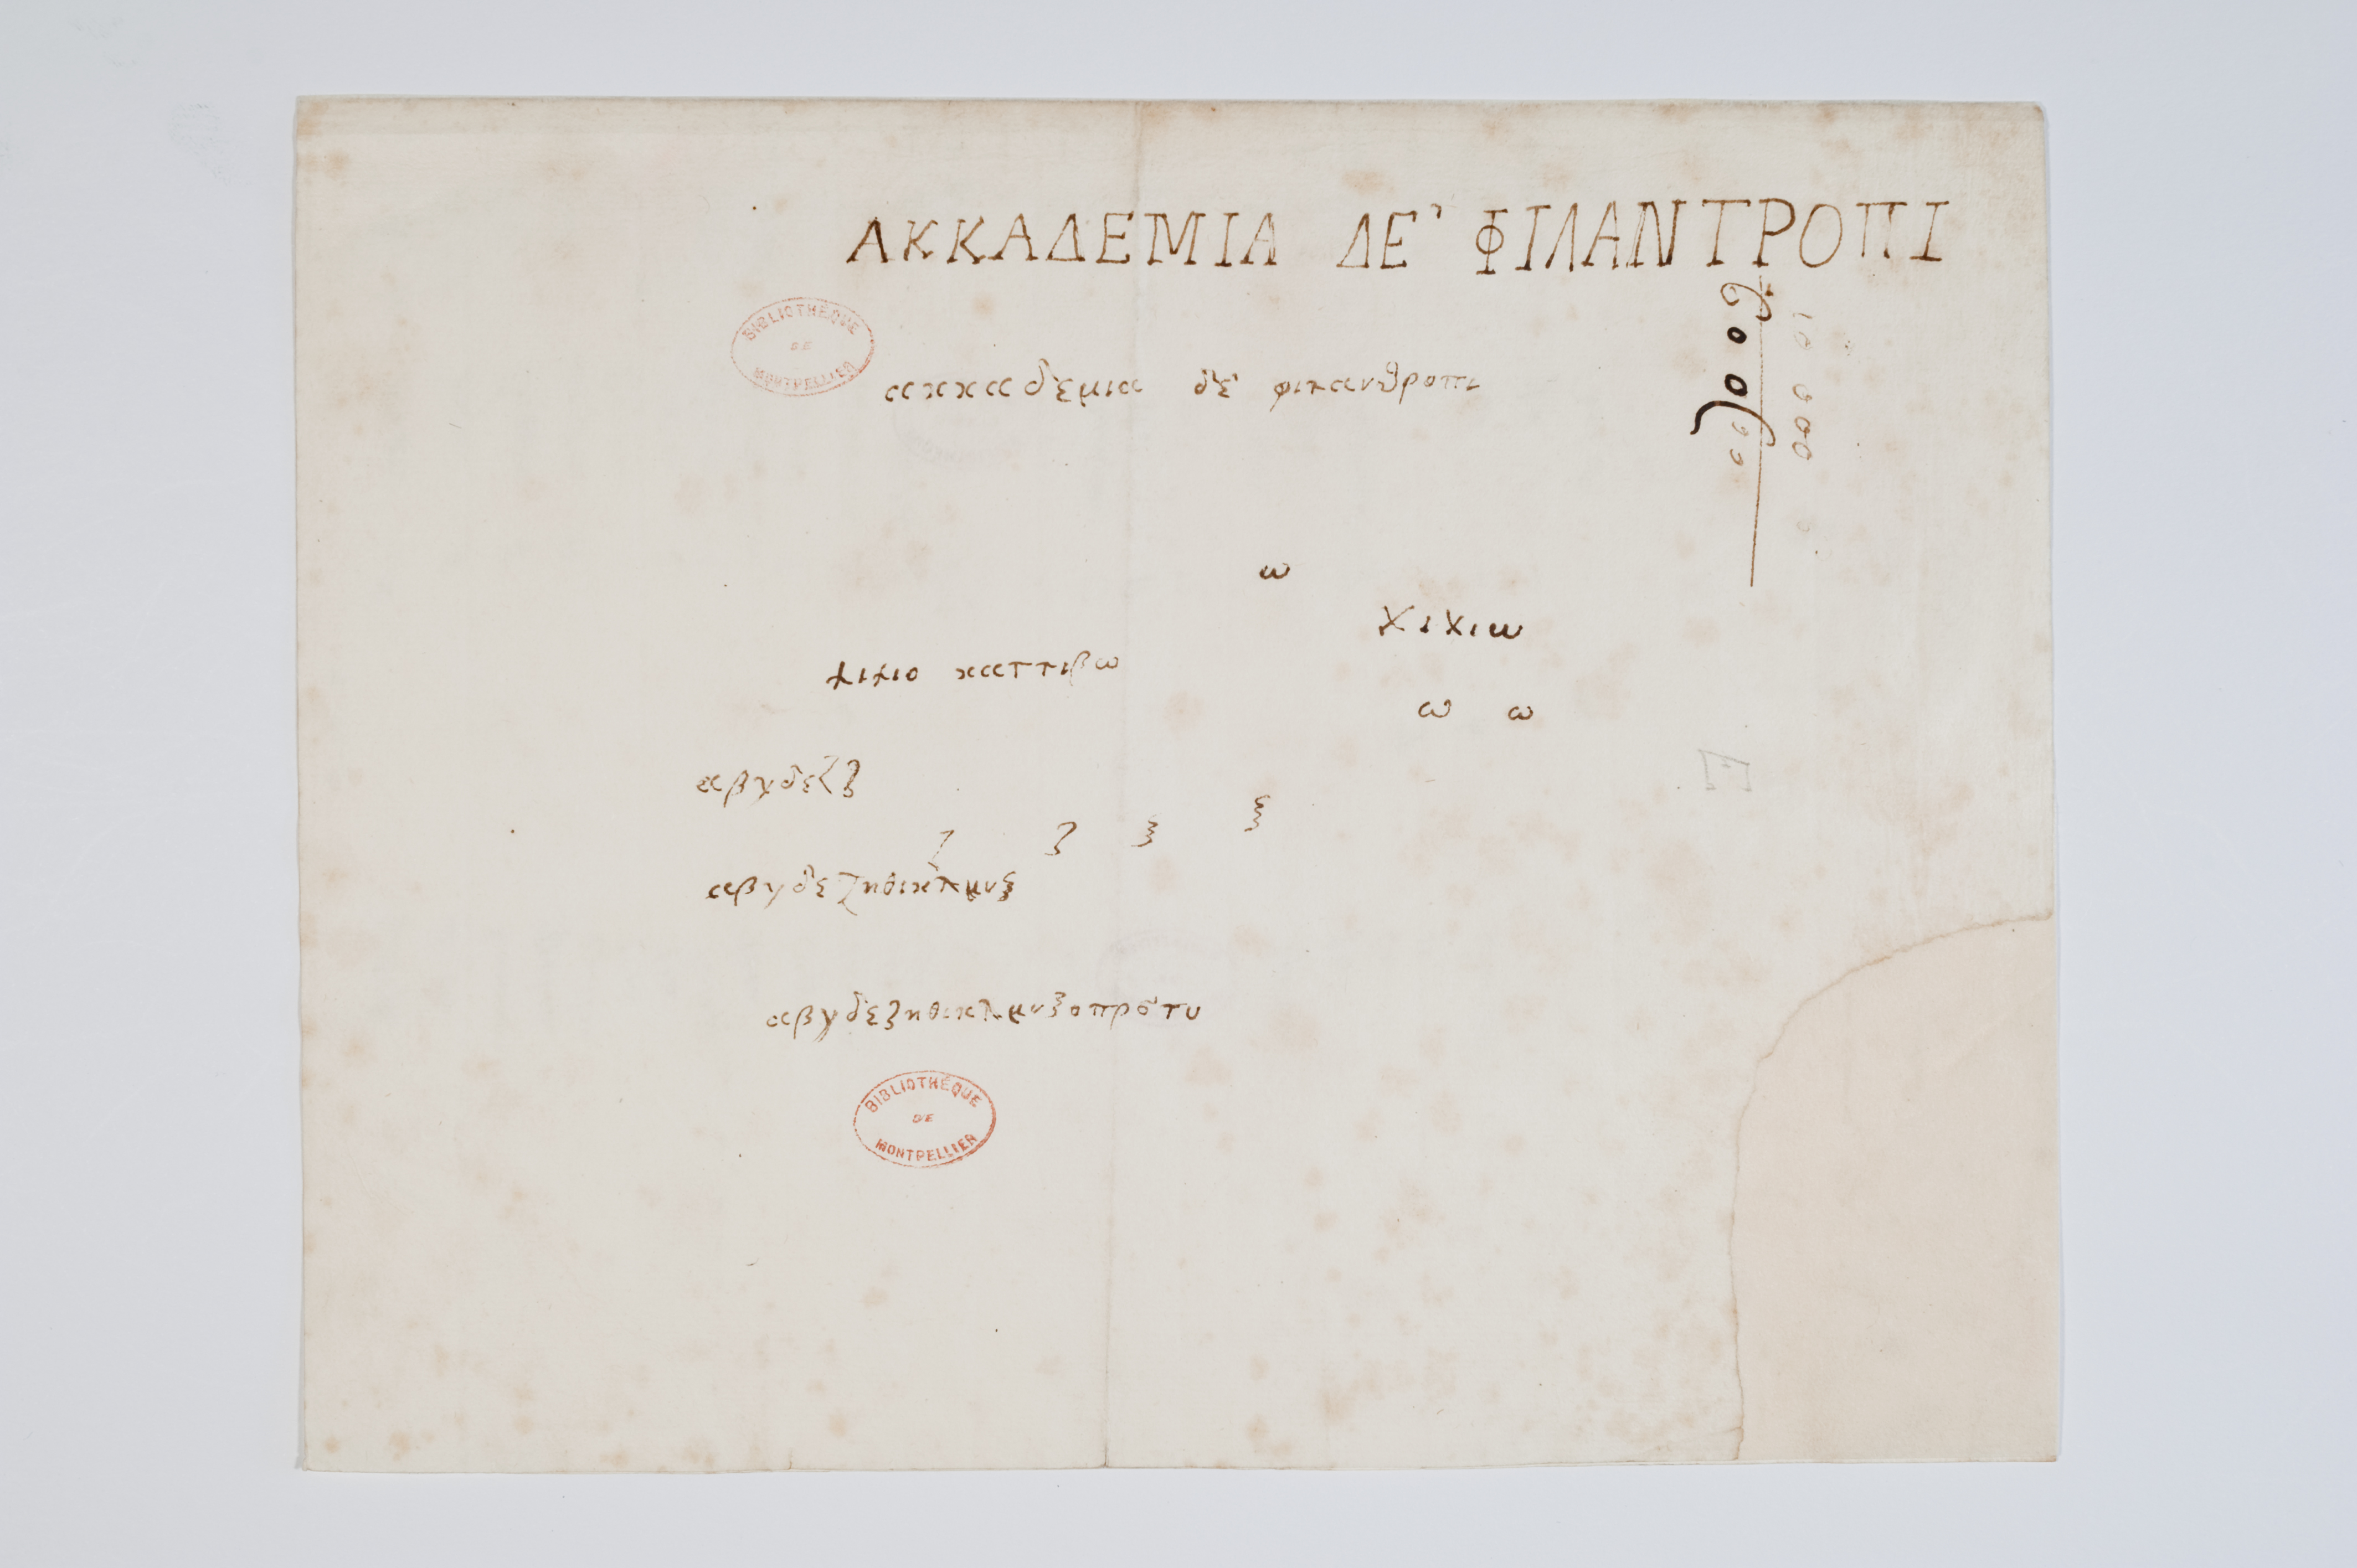 ΑΚΚΑΔΕΜΙΑ ΔΕ' ΦΙΛΑΝΤΡΟΠΙ
BIBLIOTHÈQUE
DE
MONTPELLIER
ακκαδεμια δε' φιλανθροπι
ω
χιχιω
λιλιο καττιβω
ω ω
αβγδεζζ
ζ ζ ξ ξ
αβγδεζηθικλμνξ
αβγδεζηθικλμνξοπρστυ
BIBLIOTHÈQUE
DE
MONTPELLIER